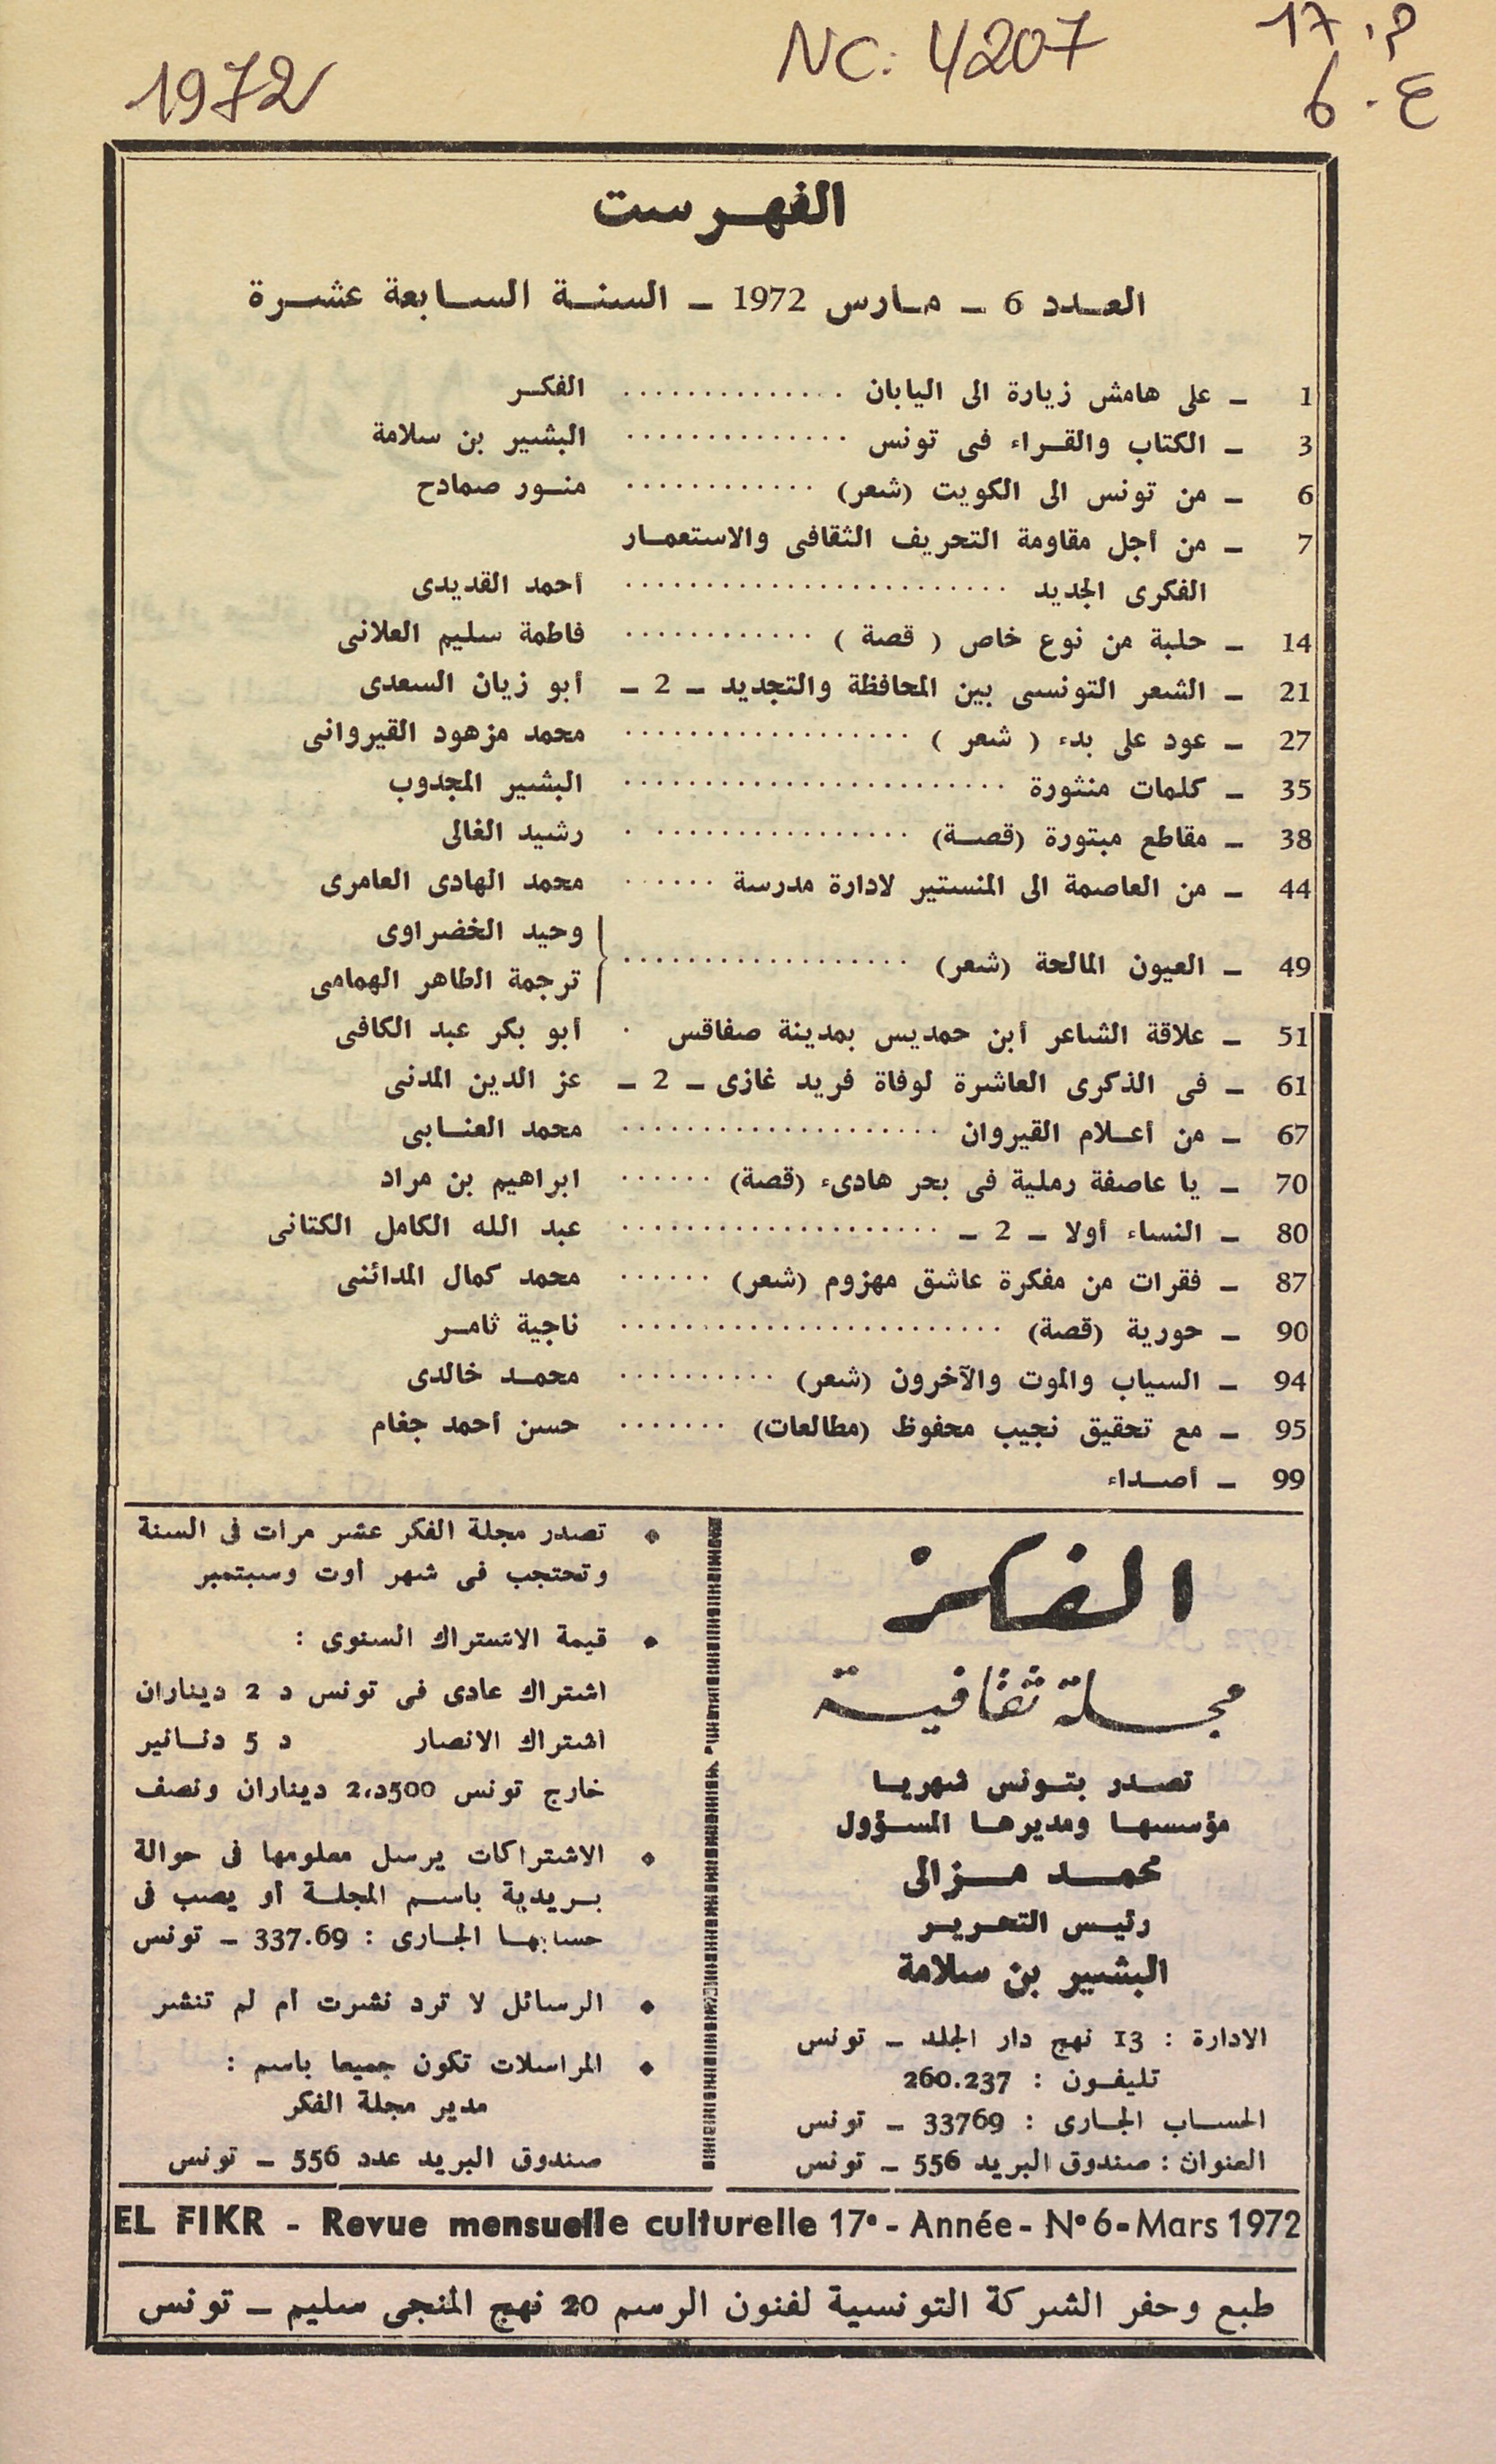 1972
NC: 4207
م. 17
ع. 6
الفهرست
العدد 6 ـ مارس 1972 ـ السنة السابعة عشرة
1 ـ على هامش زيارة الى اليابان .............. الفكر
3 ـ الكتاب والقراء فى تونس .............. البشير بن سلامة
6 ـ من تونس الى الكويت (شعر) ............ منور صمادح
7 ـ من أجل مقاومة التحريف الثقافى والاستعمار
الفكرى الجديد ........................ أحمد القديدى
14 ـ حلبة من نوع خاص ( قصة ) ............ فاطمة سليم العلانى
21 ـ الشعر التونسى بين المحافظة والتجديد ـ 2 ـ أبو زيان السعدى
27 ـ عود على بدء ( شعر ) .................. محمد مزهود القيروانى
35 ـ كلمات منثورة ........................ البشير المجدوب
38 ـ مقاطع مبتورة (قصة) ................. رشيد الغالى
44 ـ من العاصمة الى المنستير لادارة مدرسة ...... محمد الهادى العامرى
49 ـ العيون المالحة (شعر) .................. وحيد الخضراوى
ترجمة الطاهر الهمامى
51 ـ علاقة الشاعر أبن حمديس بمدينة صفاقس . أبو بكر عبد الكافى
61 ـ فى الذكرى العاشرة لوفاة فريد غازى ـ 2 ـ عز الدين المدنى
67 ـ من أعلام القيروان .................... محمد العنابى
70 ـ يا عاصفة رملية فى بحر هادىء (قصة) ...... ابراهيم بن مراد
80 ـ النساء أولا ـ 2 ـ .................... عبد الله الكامل الكتانى
87 ـ فقرات من مفكرة عاشق مهزوم (شعر) ...... محمد كمال المدائنى
90 ـ حورية (قصة) ........................ ناجية ثامر
94 ـ السياب والموت والآخرون (شعر) .......... محمد خالدى
95 ـ مع تحقيق نجيب محفوظ (مطالعات) ....... حسن أحمد جغام
99 ـ أصداء
الفكر
مجلة ثقافية
تصدر بتونس شهريا
مؤسسها ومديرها المسؤول
محمد مزالى
رئيس التحرير
البشير بن سلامة
الادارة : 13 نهج دار الجلد ـ تونس
تليفون : 260.237
الحساب الجارى : 33769 ـ تونس
العنوان : صندوق البريد 556 ـ تونس
• تصدر مجلة الفكر عشر مرات فى السنة
وتحتجب فى شهر أوت وسبتمبر
• قيمة الاشتراك السنوى :
اشتراك عادى فى تونس د 2 ديناران
اشتراك الانصار د 5 دنانير
خارج تونس 500د،2 ديناران ونصف
• الاشتراكات يرسل معلومها فى حوالة
بريدية باسم المجلة أو يصب فى
حسابها الجارى : 337.69 ـ تونس
• الرسائل لا ترد نشرت أم لم تنشر
• المراسلات تكون جميعا باسم :
مدير مجلة الفكر
صندوق البريد عدد 556 ـ تونس
EL FIKR - Revue mensuelle culturelle 17e - Année - N° 6 - Mars 1972
طبع وحفر الشركة التونسية لفنون الرسم 20 نهج المنجى سليم ـ تونس